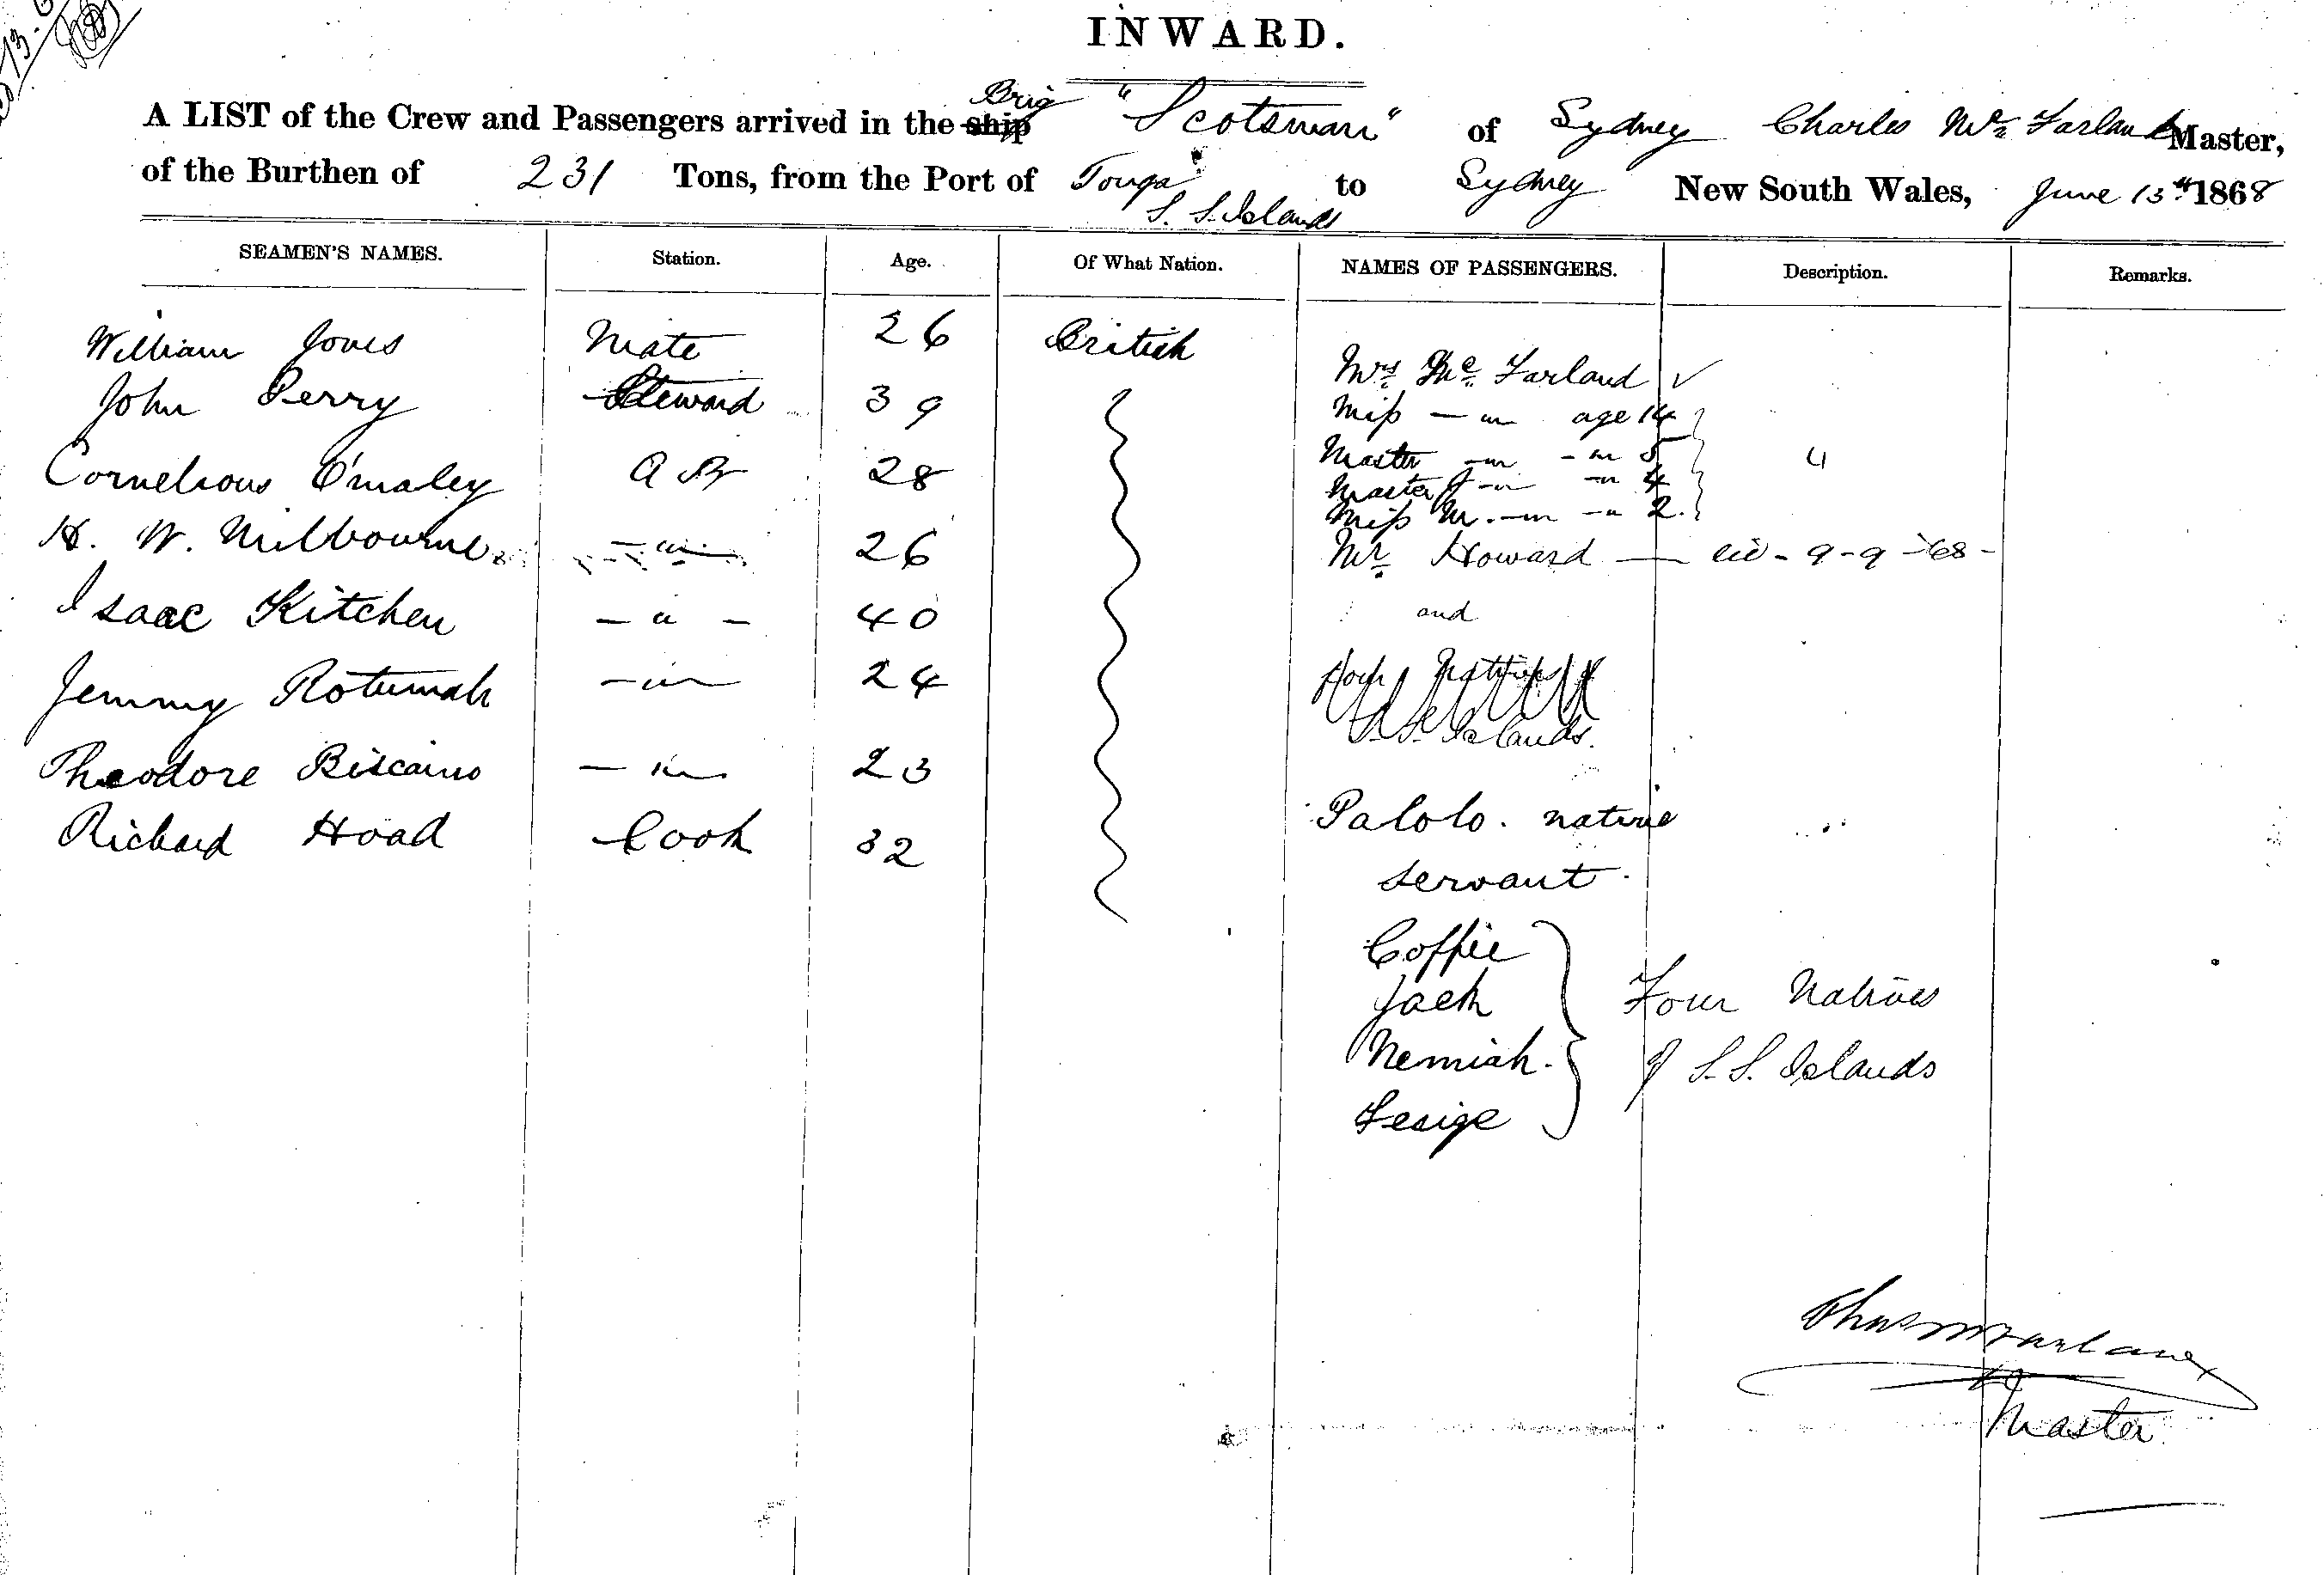 INWARD.
Brig
A LIST of the Crew and Passengers arrived in the ship "Scotsman" of Sydney Charles Mc Farland Master,
of the Burthen of 231 Tons, from the Port of Tonga to Sydney New South Wales, June 13th 1868
S. S. Islands
SEAMEN'S NAMES. Station. Age. Of What Nation. NAMES OF PASSENGERS. Description. Remarks.
William Jones Mate 26 British
Mrs Mc Farland ✓
John Perry Steward 39
Miss — " — age 14
Cornelious O'maley A B 28
Master — " — " 5 4
Master J — " — " 4
Miss M. — " — " 2.
H. W. Milbourne — " — 26
Mr Howard — — 9 - 9 - 68 -
Isaac Kitchen — " — 40
and
Jemmy Rotumah — " — 24
Four Natives of
S. S. Islands.
Theodore Biscaino — " — 23
Richard Hoad Cook 32
Palolo. native
servant.
Coffie
Jack Four Natives
Nemiah. of S. S. Islands
Lesige
Chas McFarlane
Master